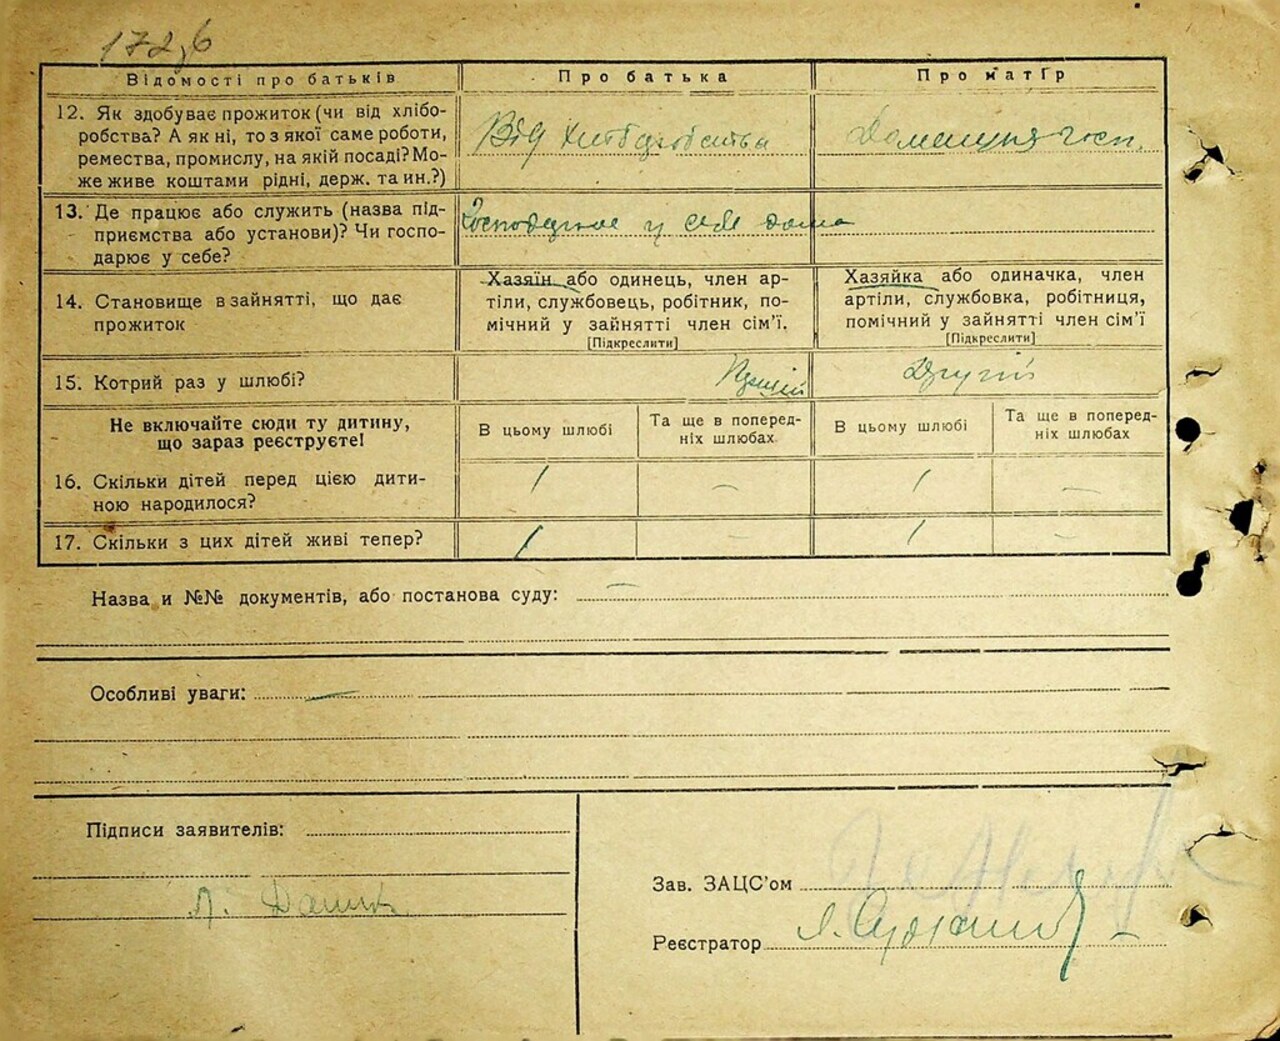 172 зв
Відомості про батьків Про батька Про матір
12. Як здобуває прожиток (чи від хлібо-
робства? А як ні, то з якої саме роботи,
ремества, промислу, на якій посаді? Мо-
же живе коштами рідні, держ. та ин.?)
Від хліборобства
Домашня госп.
13. Де працює або служить (назва під-
приємства або установи)? Чи госпо-
дарює у себе?
у себе дома
14. Становище в зайнятті, що дає
прожиток
Хазяїн або одинець, член ар-
тіли, службовець, робітник, по-
мічний у зайнятті член сім'ї.
[Підкреслити]
Хазяйка або одиначка, член
артіли, службовка, робітниця,
помічний у зайнятті член сім'ї
[Підкреслити]
15. Котрий раз у шлюбі?
Другій
Не включайте сюди ту дитину,
що зараз реєструєте!
В цьому шлюбі
Та ще в поперед-
ніх шлюбах
В цьому шлюбі
Та ще в поперед-
ніх шлюбах
16. Скільки дітей перед цією дити-
ною народилося?
1 — 1 —
17. Скільки з цих дітей живі тепер?
1 — 1 —
Назва и №№ документів, або постанова суду: —
Особливі уваги: —
Підписи заявителів:
Зав. ЗАЦС'ом
Реєстратор